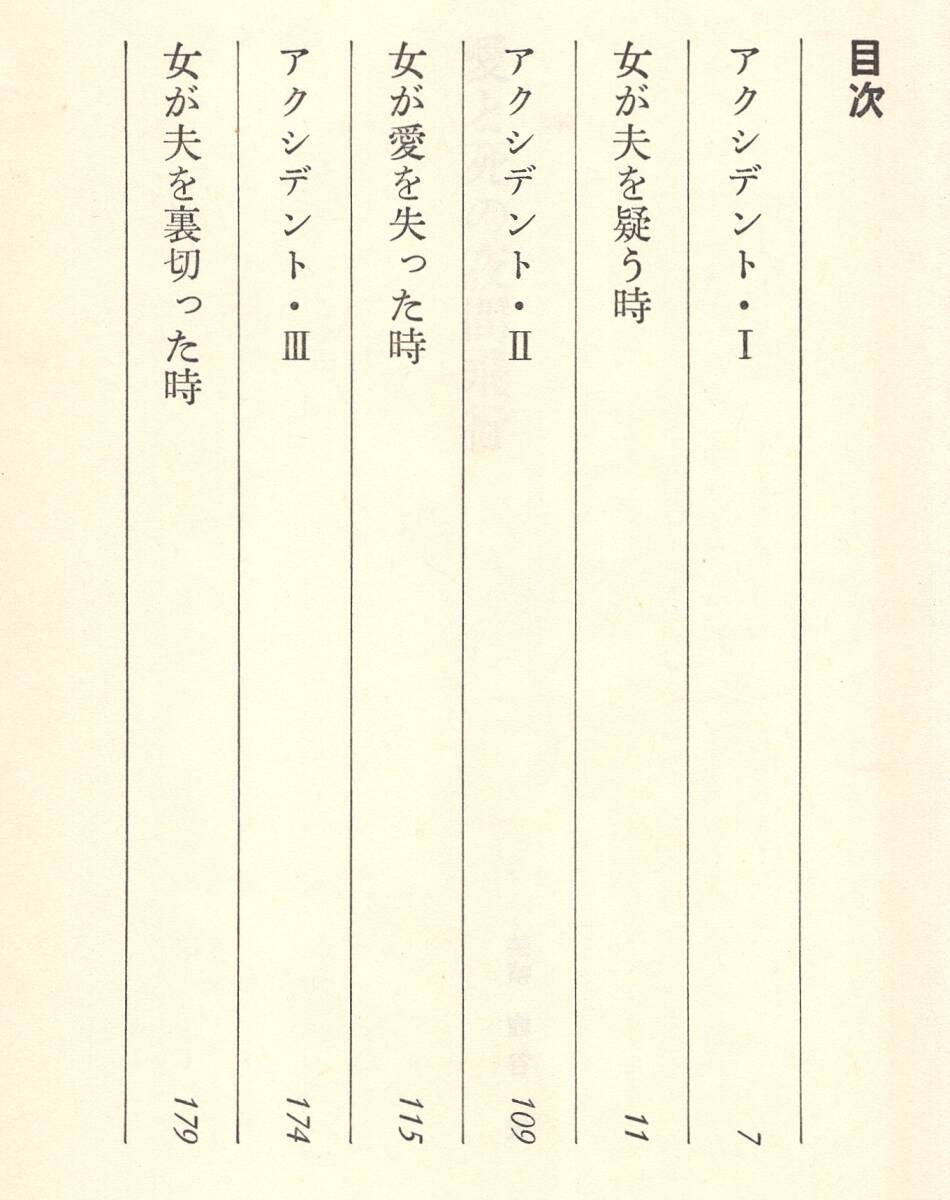 目次
アクシデント・Ⅰ 7
女が夫を疑う時 11
アクシデント・Ⅱ 109
女が愛を失った時 115
アクシデント・Ⅲ 174
女が夫を裏切った時 179